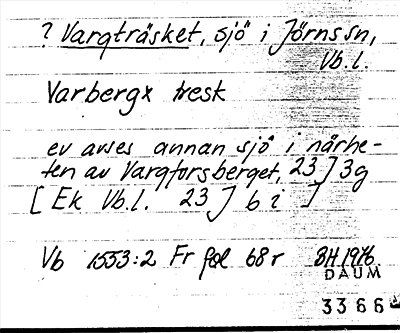 ? Vargträsket, sjö i Jörns sn,
Vb. l.
Varbergx tresk
ev avses annan sjö i närhe-
ten av Vargforsberget, 23 J 3g
[Ek Vb.l. 23 J 6 i ]
Vb 1553:2 Fr fol 68 r BH 1976
DAUM
3366